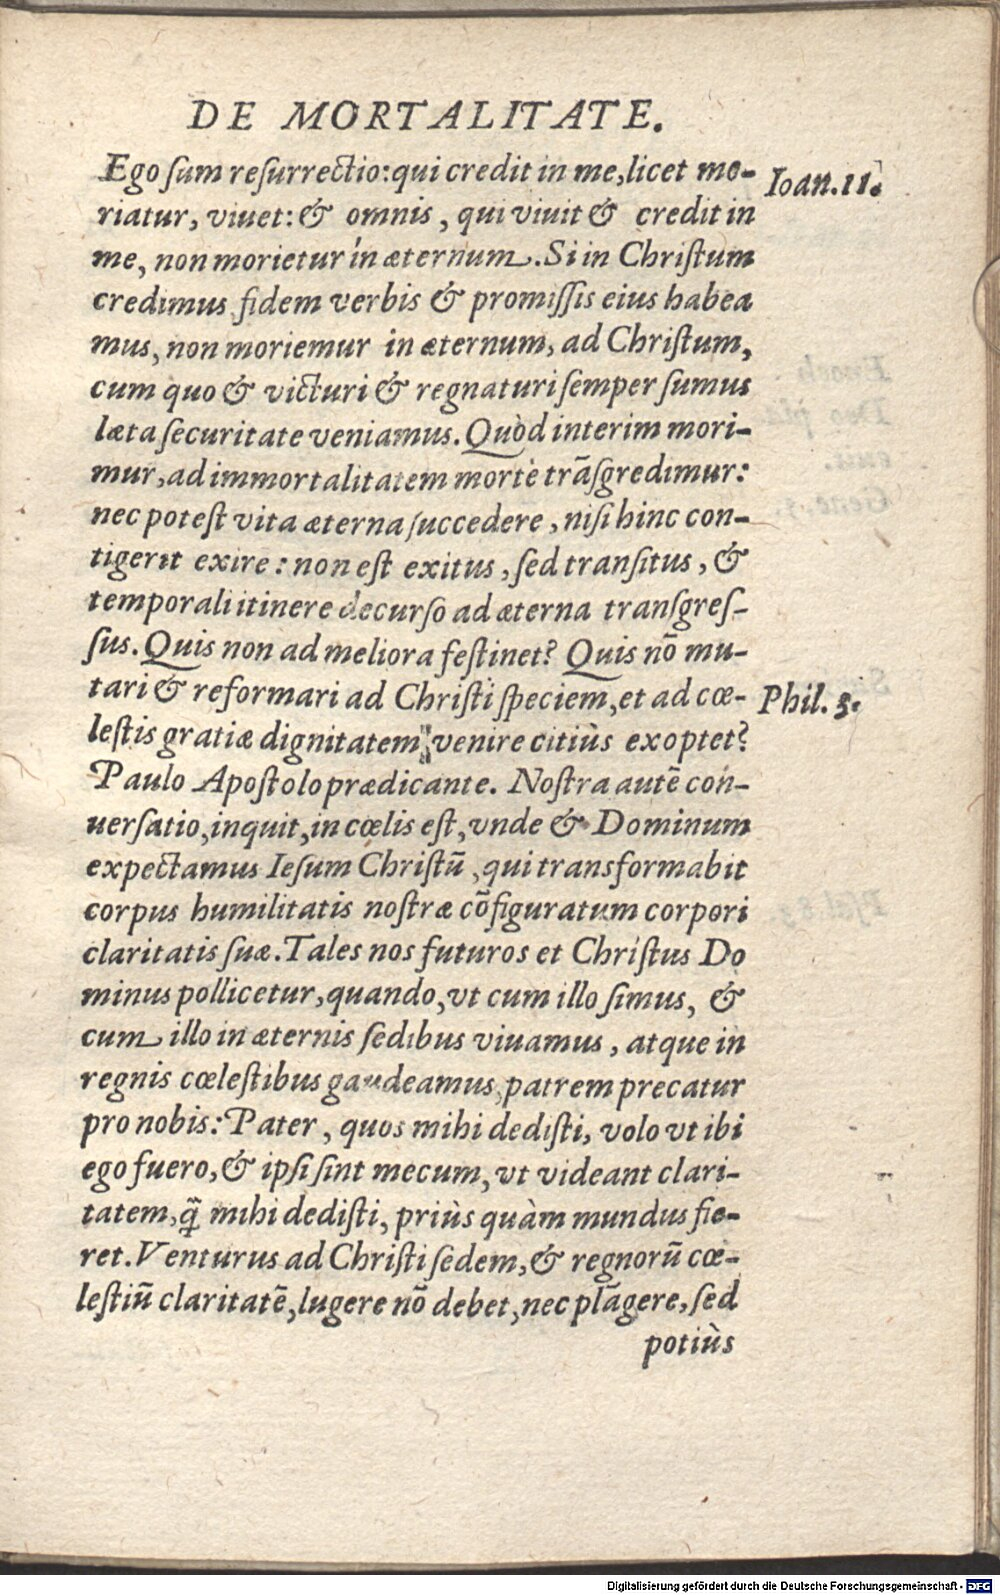 DE MORTALITATE.
Ego ſum reſurrectio: qui credit in me, licet mo-
Ioan. 11.
riatur, viuet: & omnis, qui viuit & credit in
me, non morietur in æternum. Si in Chriſtum
credimus, fidem verbis & promiſſis eius habea
mus, non moriemur in æternum, ad Chriſtum,
cum quo & victuri & regnaturi ſemper ſumus
læta ſecuritate veniamus. Quòd interim mori-
mur, ad immortalitatem mortẽ trãſgredimur:
nec poteſt vita æterna ſuccedere, niſi hinc con-
tigerit exire: non eſt exitus, ſed tranſitus, &
temporali itinere decurſo ad æterna tranſgreſ-
ſus. Quis non ad meliora feſtinet? Quis nõ mu-
tari & reformari ad Chriſti ſpeciem, et ad cœ-
Phil. 3.
leſtis gratiæ dignitatem venire citiùs exoptet?
Paulo Apoſtolo prædicante. Noſtra autẽ con-
uerſatio, inquit, in cœlis eſt, vnde & Dominum
expectamus Ieſum Chriſtũ, qui transformabit
corpus humilitatis noſtræ cõfiguratum corpori
claritatis ſuæ. Tales nos futuros et Chriſtus Do
minus pollicetur, quando, vt cum illo ſimus, &
cum illo in æternis ſedibus viuamus, atque in
regnis cœleſtibus gaudeamus, patrem precatur
pro nobis: Pater, quos mihi dediſti, volo vt ibi
ego fuero, & ipſi ſint mecum, vt videant clari-
tatem, q̃ mihi dediſti, priùs quàm mundus fie-
ret. Venturus ad Chriſti ſedem, & regnorũ cœ-
leſtiũ claritatẽ, lugere nõ debet, nec plãgere, ſed
potiùs
Digitalisierung gefördert durch die Deutsche Forschungsgemeinschaft - DFG